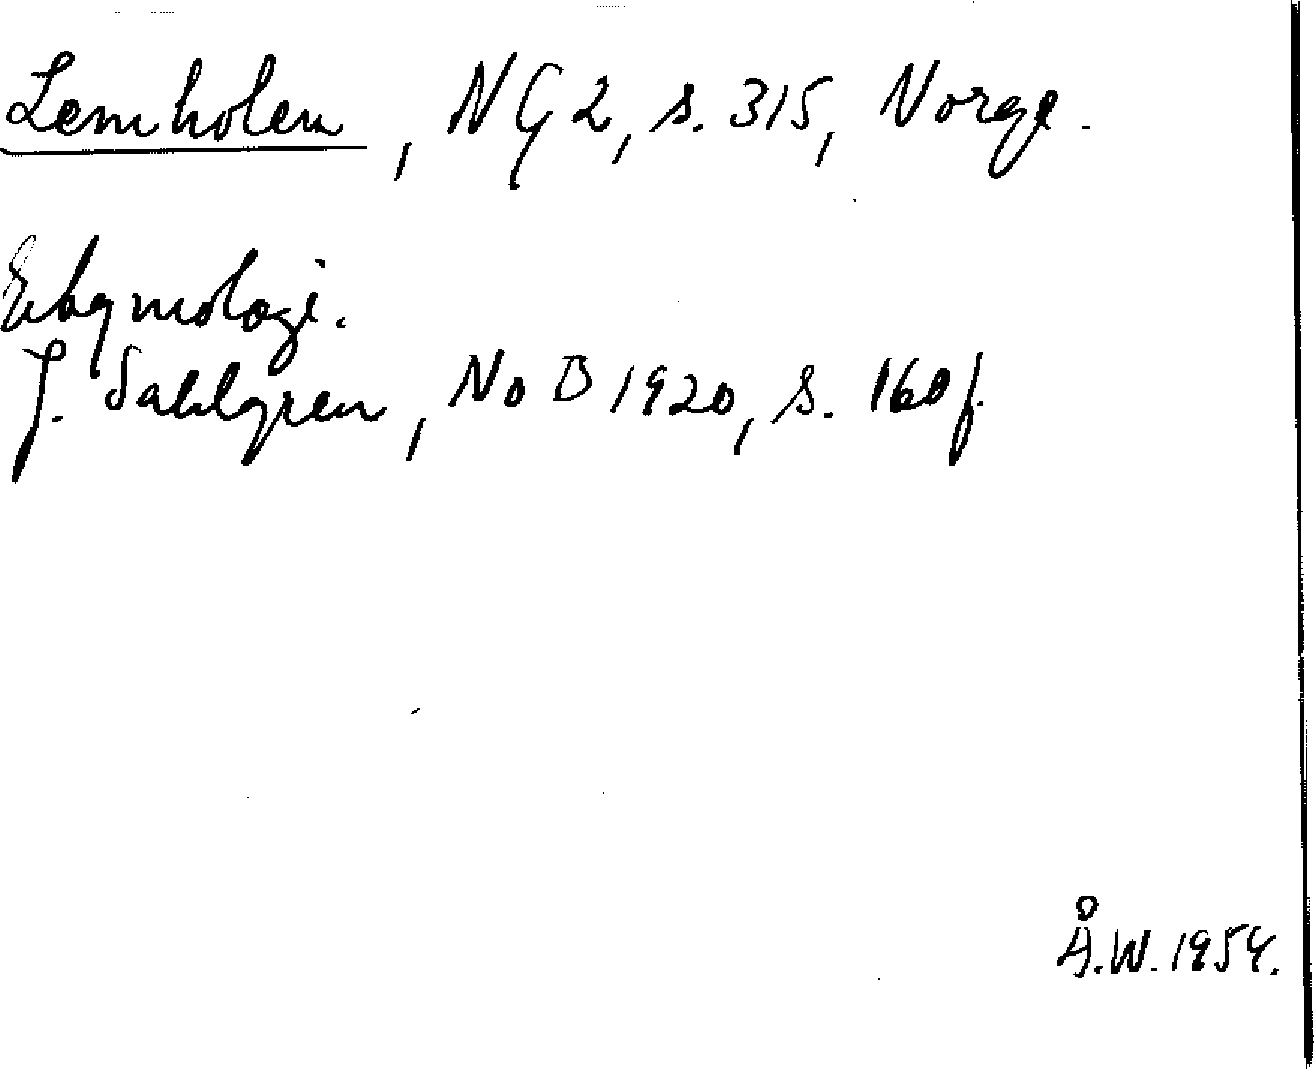 Lemholen, NG 2, s. 315, Norge.
Etymologi.
J. Sahlgren, NoB 1920, s. 160 f.
Å.W. 1954.